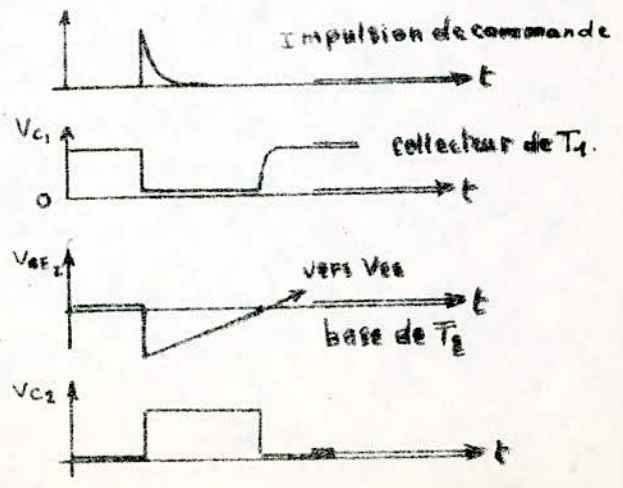 Impulsion de commande
t
Vc1
collecteur de T1.
0
t
VBE2
vers Vcc
t
base de T2
Vc2
t